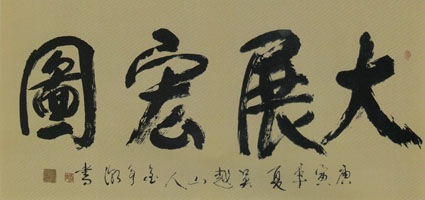 大展宏圖
庚寅年夏吳越山人金年潮書